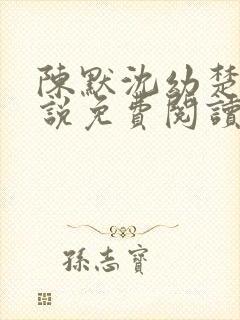 陳默沈幼楚
說免費閱讀
孫志寶